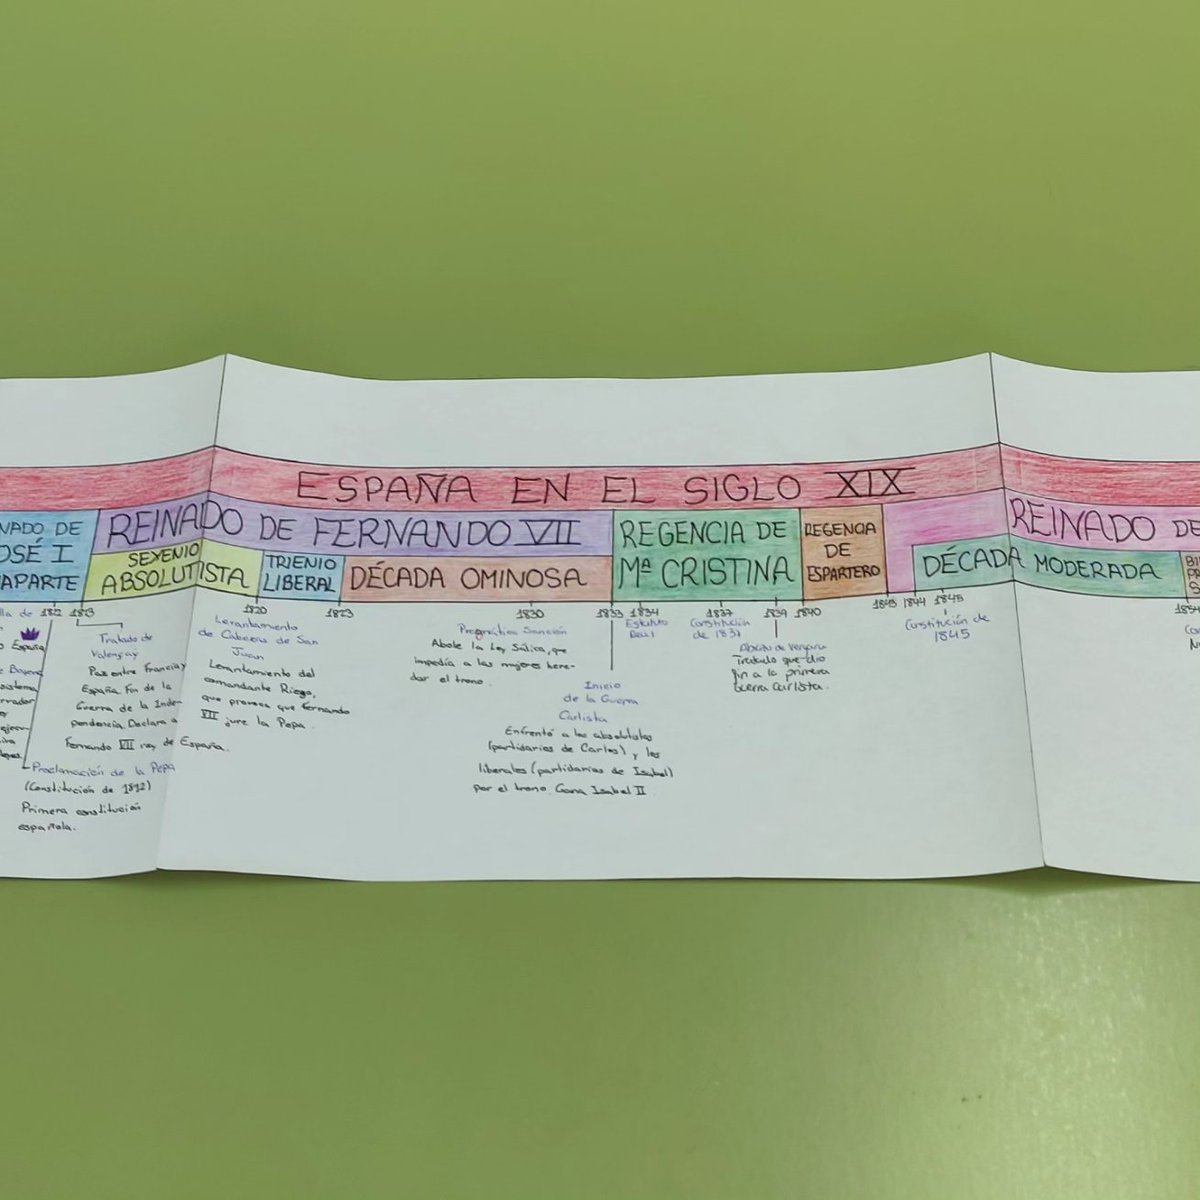 ESPAÑA EN EL SIGLO XIX
NADO DE
OSÉ I
APARTE
REINADO DE FERNANDO VII
SEXENIO
ABSOLUTISTA
TRIENIO
LIBERAL
DÉCADA OMINOSA
REGENCIA DE
Mª CRISTINA
REGENCIA
DE
ESPARTERO
REINADO DE
DÉCADA MODERADA
1812
1813
1820
1823
1830
1833
1834
1837
1839
1840
1843
1844
1845
1854
España
Proclamación de la Pepa
(Constitución de 1812)
Primera constitución
española.
Tratado de
Valençay
Paz entre Francia y
España. Fin de la
Guerra de la Inde-
pendencia. Declara a
Fernando VII rey de España.
Levantamiento
de Cabezas de San
Juan
Levantamiento del
comandante Riego,
que provoca que Fernando
VII jure la Pepa.
Pragmática Sanción
Abole la Ley Sálica, que
impedía a las mujeres here-
dar el trono.
Inicio
de la Guerra
Carlista
Enfrentó a los absolutistas
(partidarios de Carlos) y los
liberales (partidarios de Isabel)
por el trono. Gana Isabel II
Estatuto
Real
Constitución
de 1837
Abrazo de Vergara
Tratado que dio
fin a la primera
Guerra Carlista.
Constitución de
1845